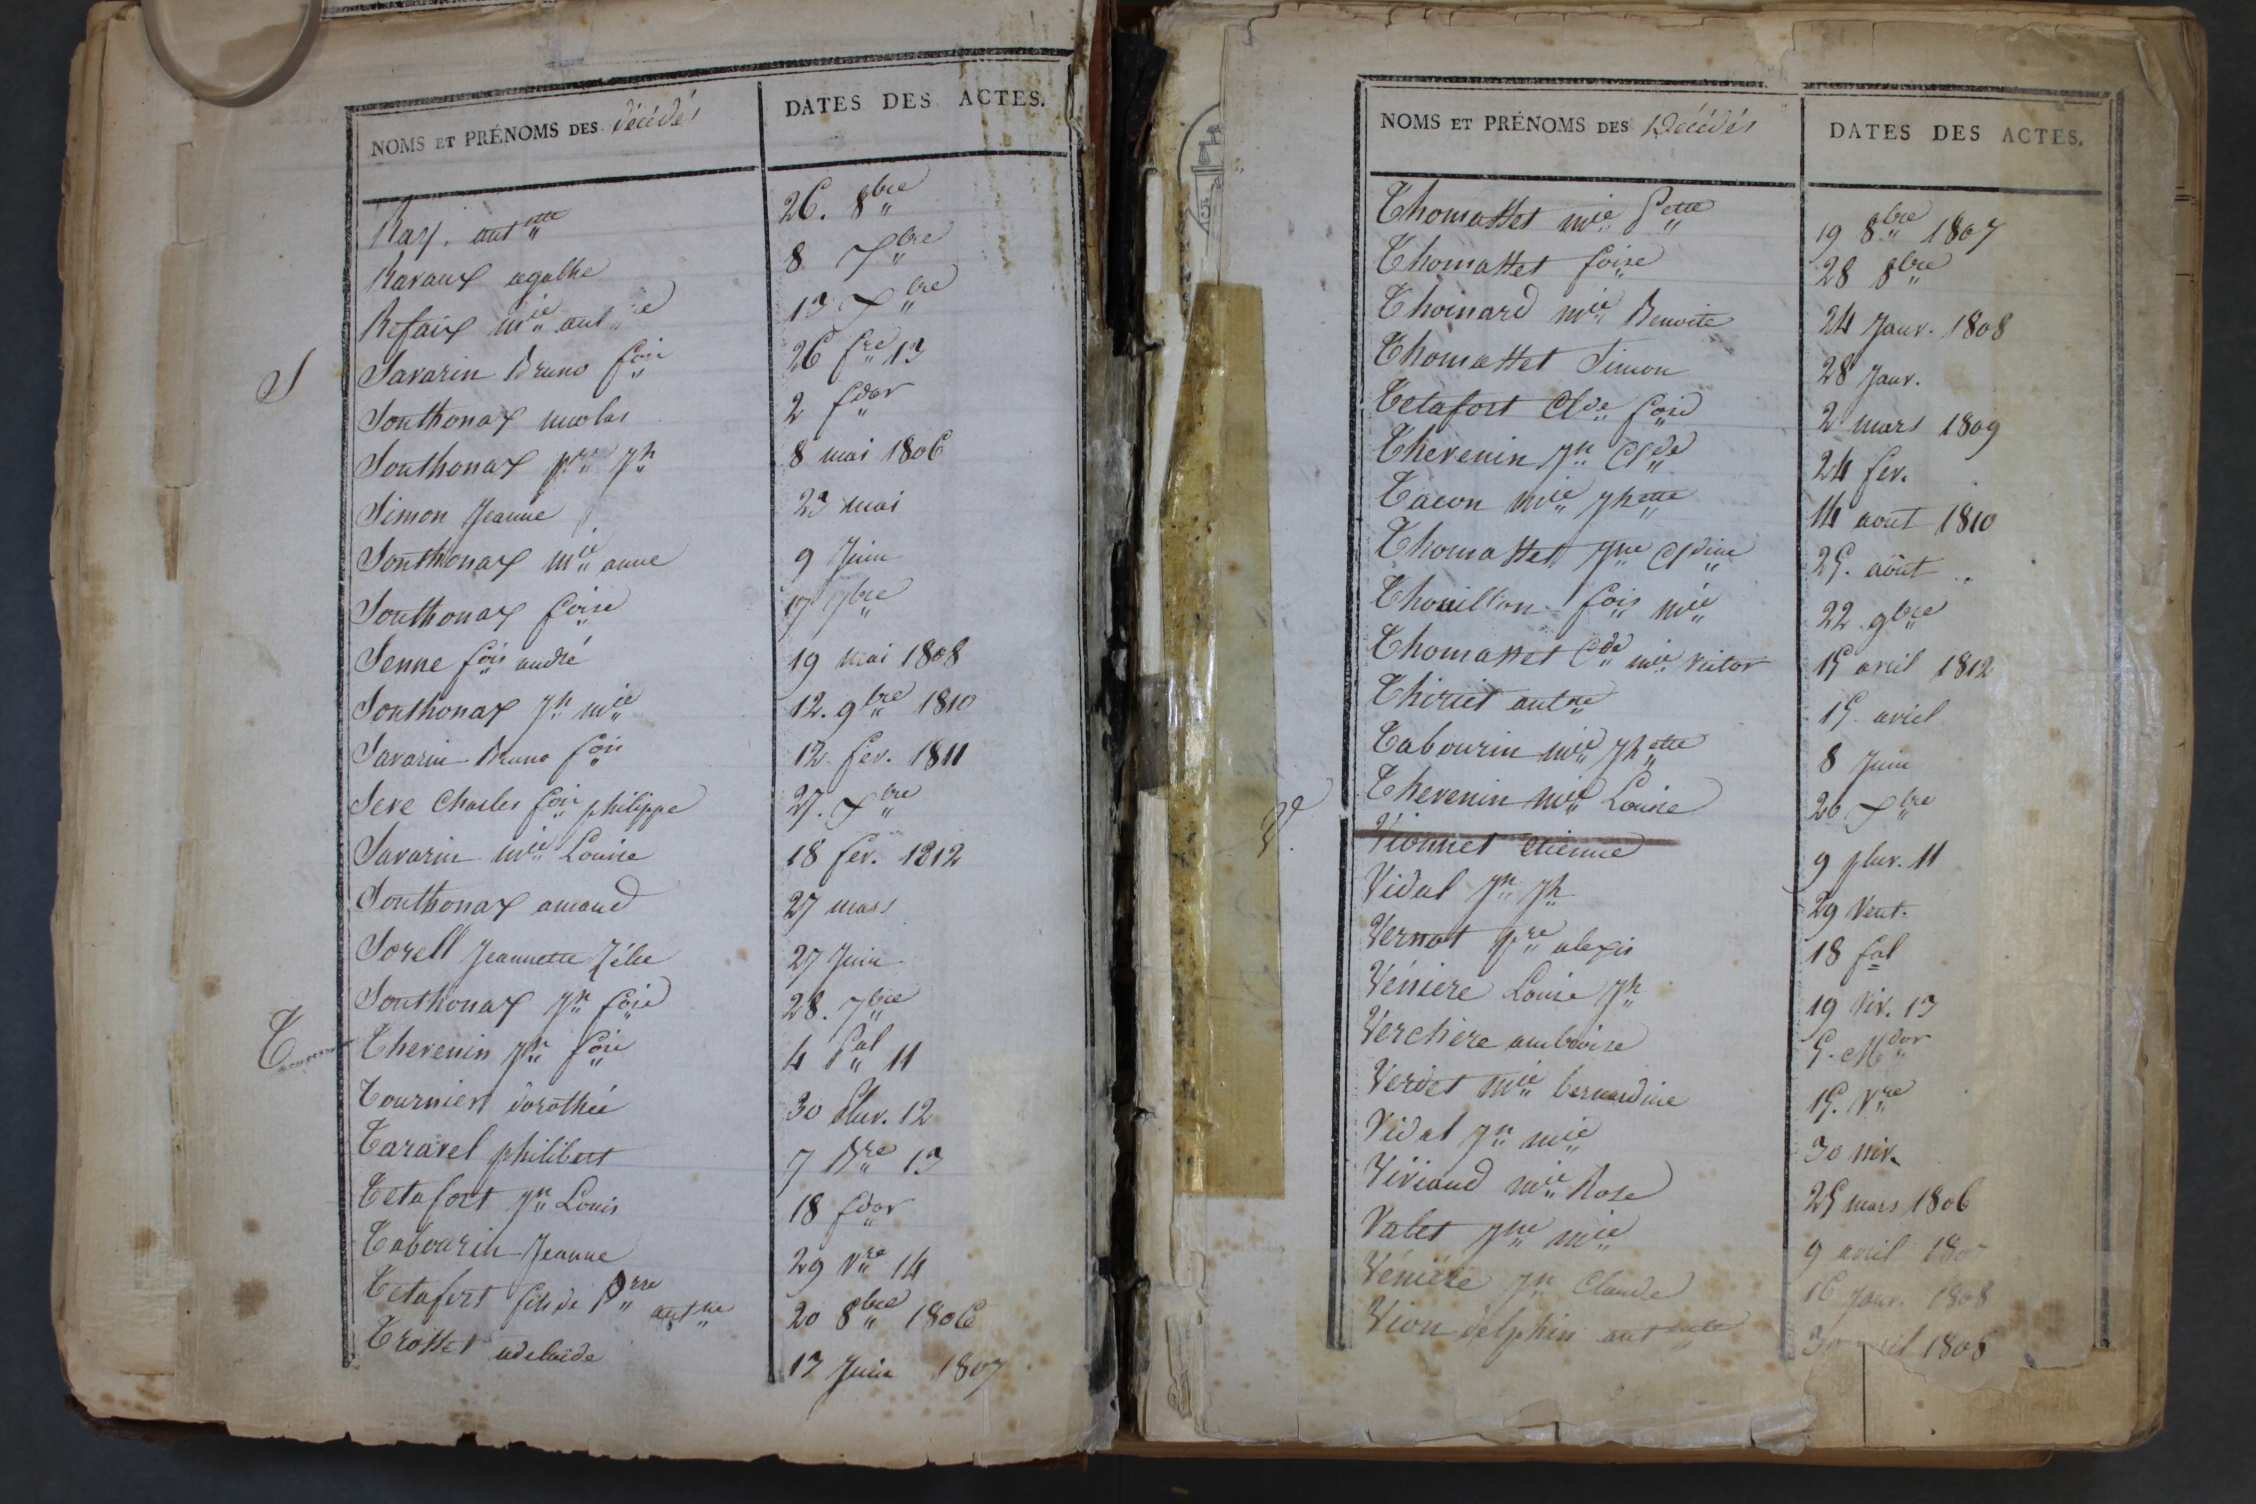 NOMS ET PRÉNOMS DES décédés DATES DES ACTES.
Ray. antette 26. 8bre
Ravaux agathe 8 7bre
Refaix mie antne 13 Xbre
S
Savarin Bruno fois 26 fre 13
Sonthonax nicolas 2 fdor
Sonthonax pre Jh 8 mai 1806
Simon Jeanne 23 mai
Sonthonax mie anne 9 Juin
Sonthonax foise 17 7bre
Senne fois andré 19 mai 1808
Sonthonax Jh mie 12. 9bre 1810
Savarin Bruno fois 12 fev. 1811
Seve Charles fois philippe 27. Xbre
Savarin mie Louise 18 fev. 1812
Sonthonax amand 27 mars
Sorell Jeannette Zélie 27 Juin
Sonthonax Jn fois 28. 7bre
T
Thevenin Jn fois 4 fal 11
Tournier dorothée 30 Pluv. 12
Taravel philibert 7 Bre 13
Tetafort Jn Louis 18 fdor
Tabourin Jeanne 29 Vre 14
Tetafort fils de Prre antne 20 8bre 1806
Trosset adelaide 13 Juin 1807
NOMS ET PRÉNOMS DES Décédés DATES DES ACTES.
Thomasset mie Pette 19 8bre 1807
Thomasset foise 28 8bre
Thoinard mie Benoite 24 Janv. 1808
Thomasset Simon 28 Janv.
Tetafort Clde fois 2 mars 1809
Thevenin Jn Clde 24 fev.
Tacon mie Jhette 14 aout 1810
Thomasset Jne Cldine 25. août
Thouillon fois mie 22 9bre
Thomasset Cde mie victor 15 avril 1812
Thiriet antne 15 avril
Tabourin mie Jhette 8 Juin
Thevenin mie Louise 26 Xbre
V.
Vionnet etienne 9 pluv. 11
Vidal Jn Jh 29 Vent.
Vernat pre alexis 18 fal
Vénière Louise Jh 19 Niv. 13
Verchère ambroise 5. Mdor
Verdet mie bernardine 15. Vre
Vidal Jn mie 30 niv.
Viviand mie Rose 25 mars 1806
Valet Jne mie 9 avril
Vénière Jn Claude 16 Janv. 1808
Vion delphin 30 1808